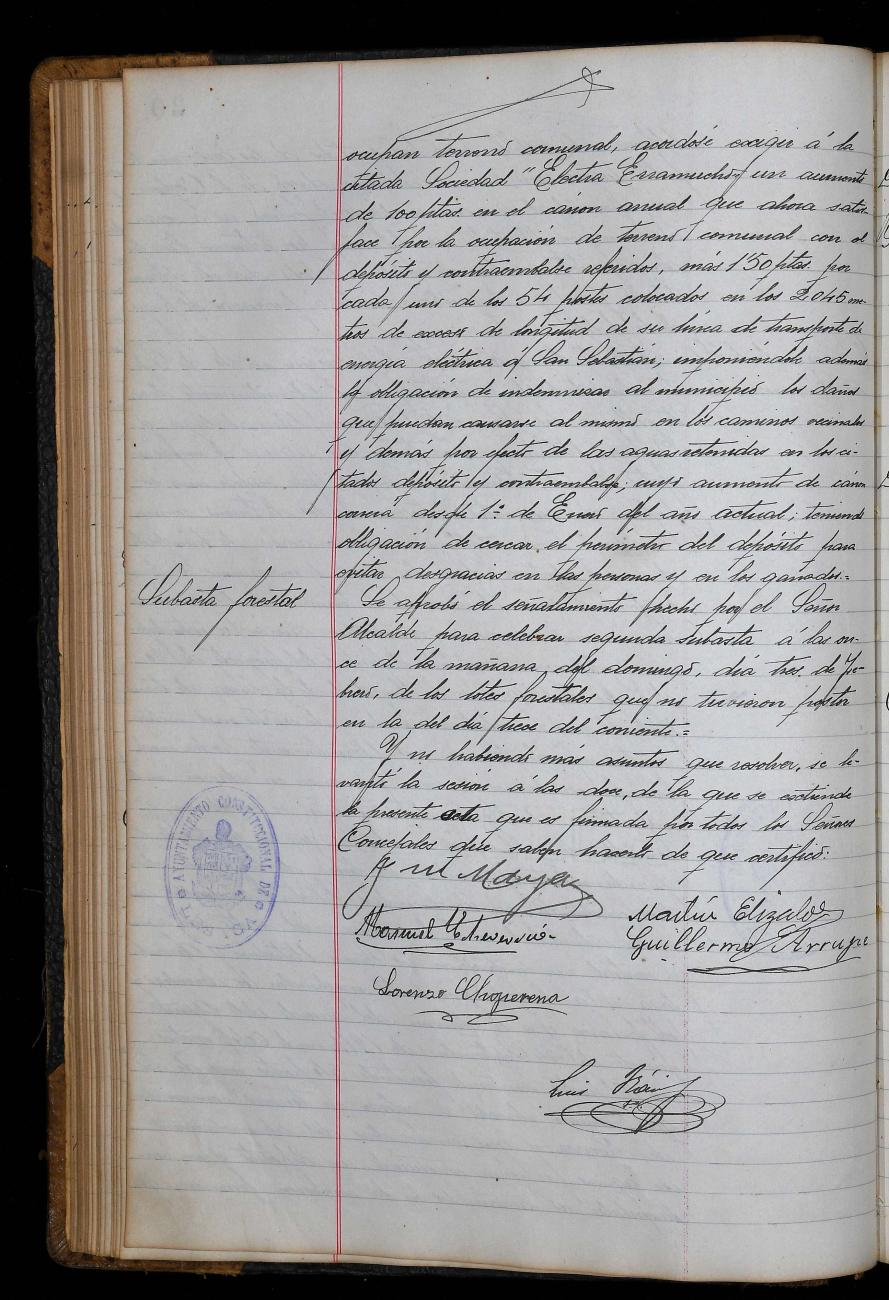 ocupan terreno comunal, acordóse exigir á la
citada Sociedad "Electra Erramucho" un aumento
de 100 ptas. en el canon anual que ahora satis-
face por la ocupación de terreno comunal con el
depósito y contraembalse referidos, más 1'50 ptas. por
cada uno de los 54 postes colocados en los 2.045 me-
tros de exceso de longitud de su línea de transporte de
energía eléctrica á San Sebastián; imponiéndole además
la obligación de indemnizar al municipio los daños
que puedan causarse al mismo en los caminos vecinales
y demás por efecto de las aguas retenidas en los ci-
tados depósito y contraembalse; cuyo aumento de cánon
correrá desde 1º de Enero del año actual; teniendo
obligación de cercar el perímetro del depósito para
evitar desgracias en las personas y en los ganados.=
Subasta forestal
Se aprobó el señalamiento hecho por el Señor
Alcalde para celebrar segunda subasta á las on-
ce de la mañana del domingo, día tres de Fe-
brero, de los lotes forestales que no tuvieron postor
en la del día trece del corriente.=
Y no habiendo más asuntos que resolver, se le-
vantó la sesión á las doce, de la que se extiende
la presente acta que es firmada por todos los Señores
Concejales que saben hacerlo de que certifico:
AYUNTAMIENTO CONSTITUCIONAL DE
Maya
Manuel
Martín Elizalde
Guillermo Arrupe
Lorenzo Choperena
Luis